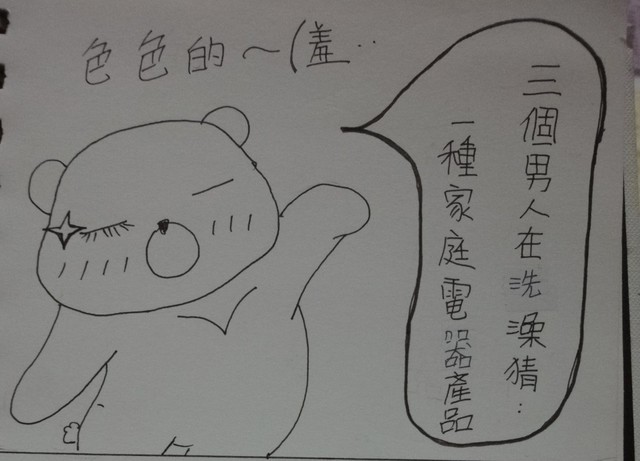 色色的～(羞..
三個男人在洗澡猜:
一種家庭電器產品